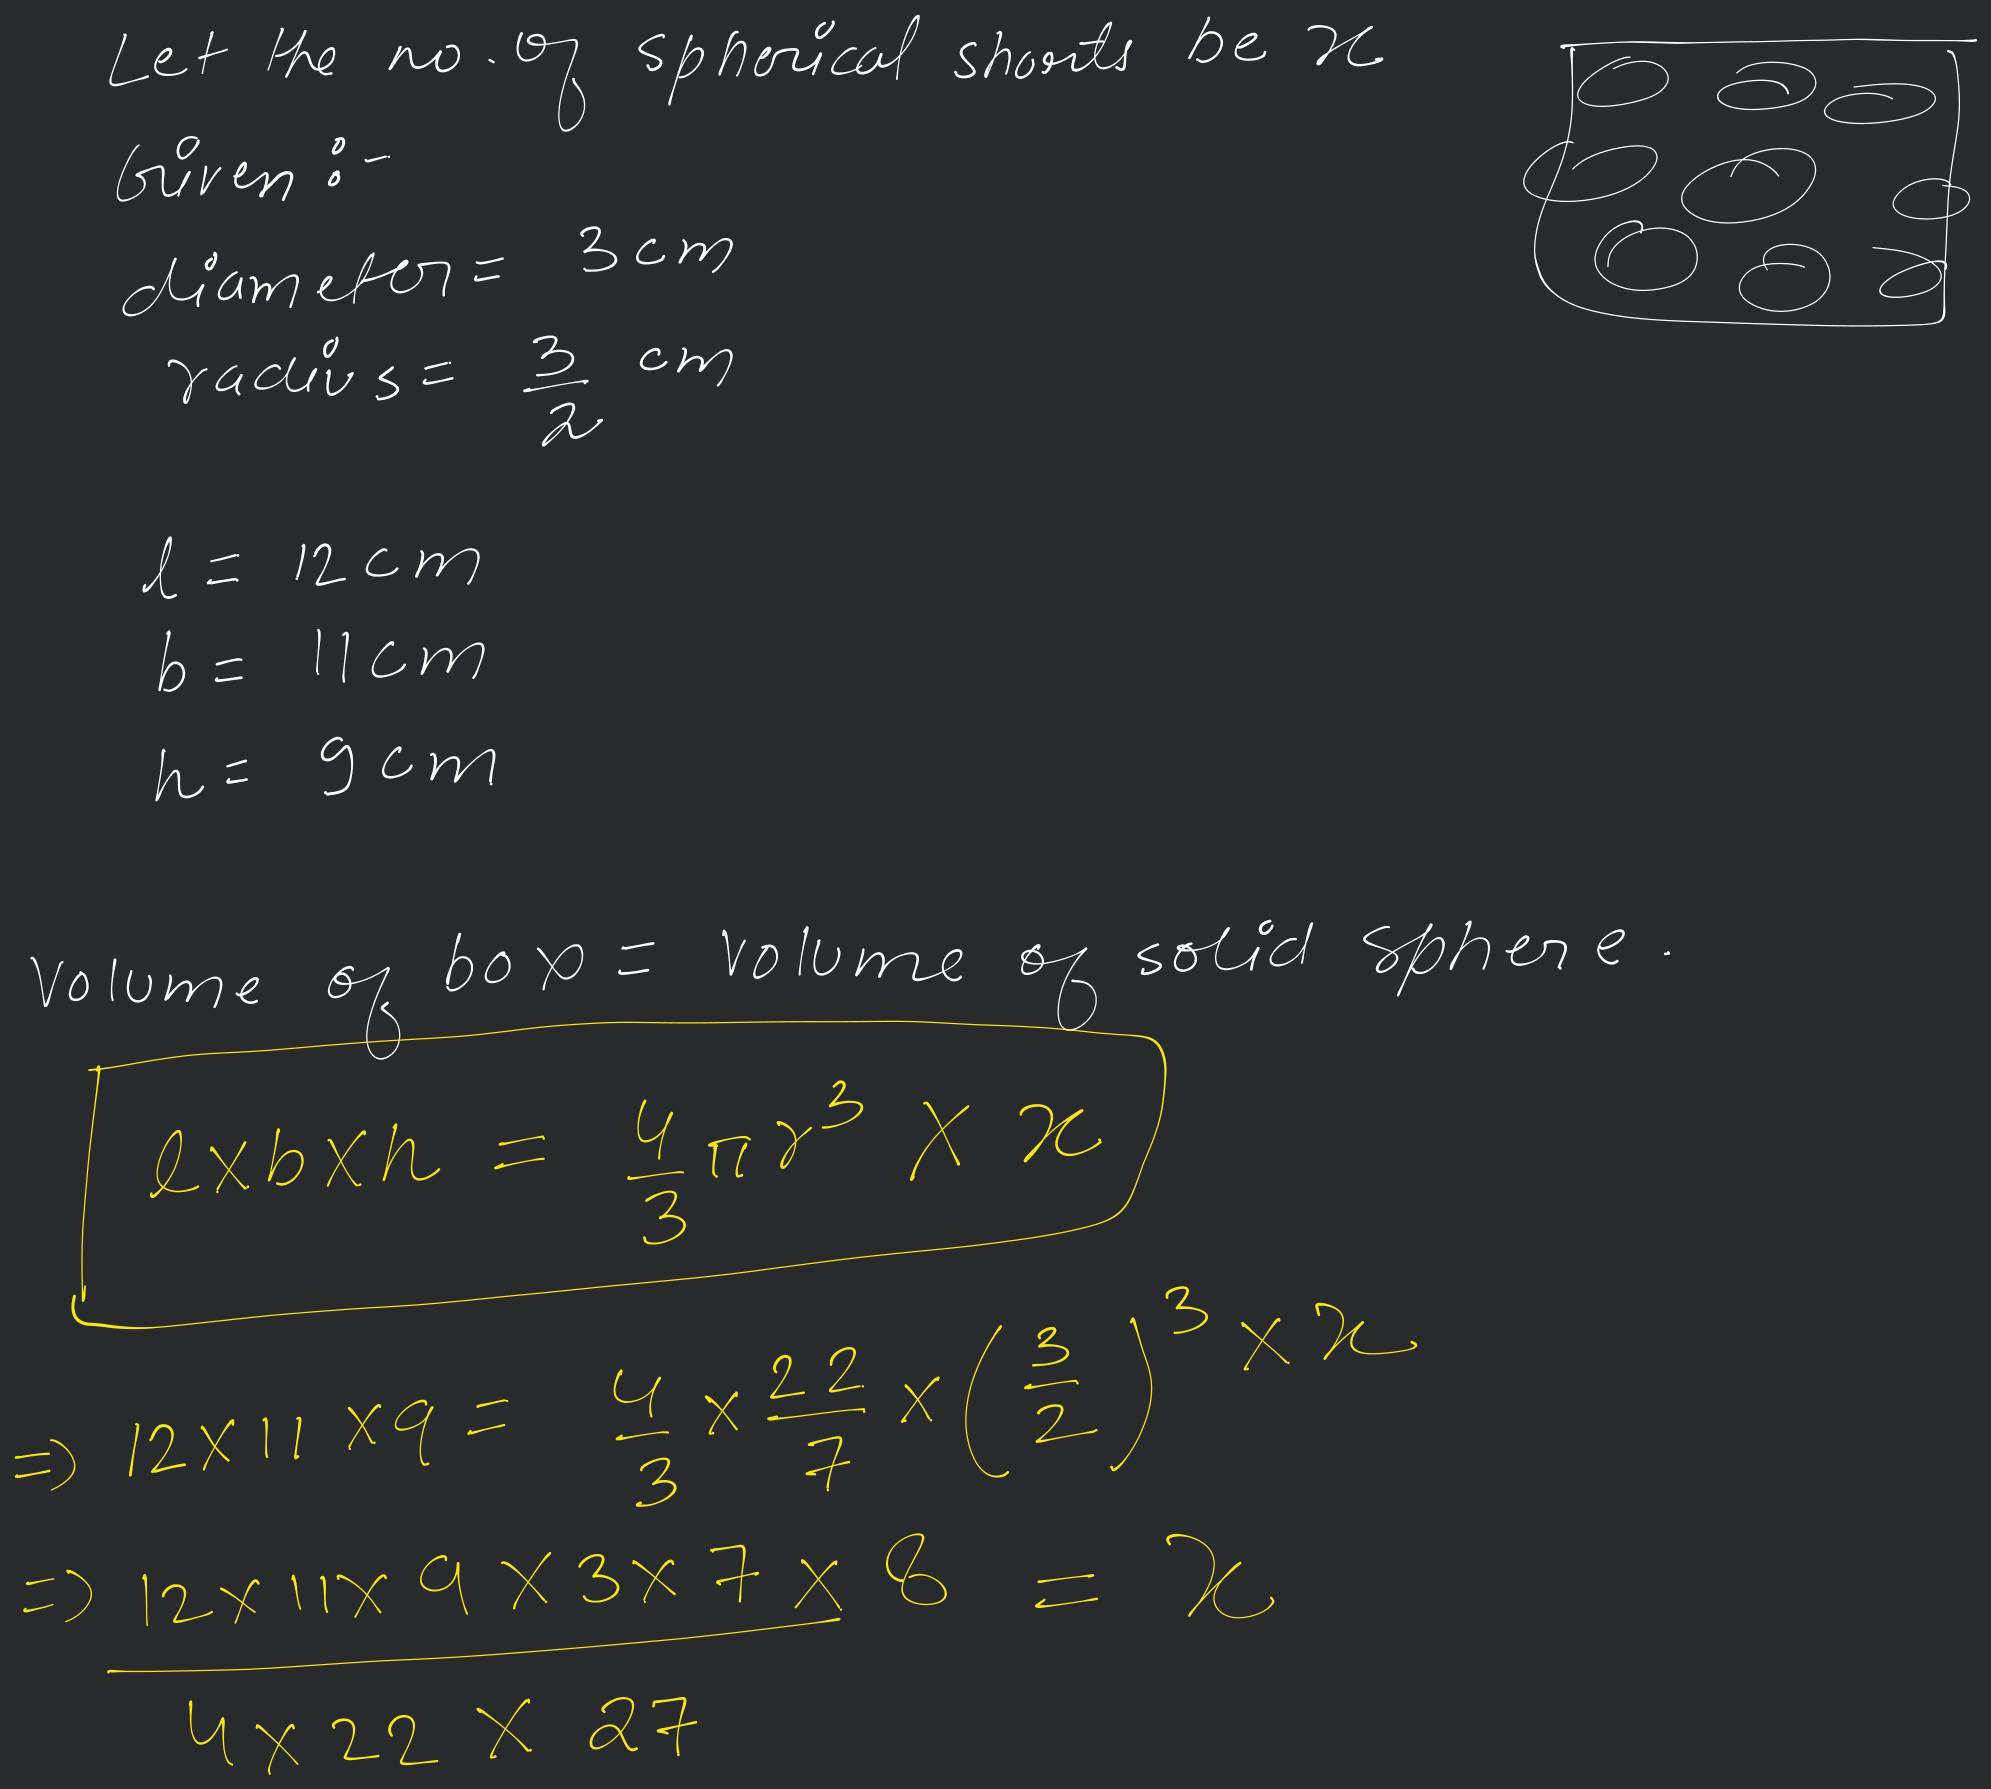 Let the no. of spherical shots be x
Given :-
diameter = 3 cm
radius = 3/2 cm
l = 12 cm
b = 11 cm
h = 9 cm
Volume of box = Volume of solid sphere.
l×b×h = 4/3 πr³ × x
⇒ 12×11×9 = 4/3 × 22/7 × (3/2)³ × x
⇒ 12×11×9×3×7×8 = x
4×22×27